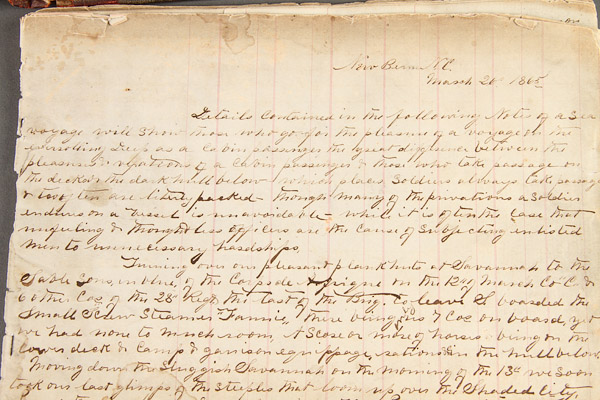 New Berne N.C.
March 20 1865
Details contained in the following Notes of a Sea
voyage will show those who go for the pleasure of a voyage on the
Deep as a Cabin passenger the great difference between the
pleasures & of a Cabin passenger & those who take passage on
the deck or the dark hull below which place Soldiers always take passage
& too often are packed – though many of the privations a soldier
endures on a vessel is unavoidable – while it is often the case that
neglecting & thoughtless officers are the cause of subjecting enlisted
men to unnecessary hardships,
Turning over our pleasant plank huts at Savannah to the
Sable Sons, in blue, of the Corps de on the 12th March, Co C. &
6 other Cos of the 28th Regt, the last of the Brig. to leave boarded the
Small Screw Steamer "Fannie," there being 7 Cos on board, yet
we had none to much room, A Score or more of horses being on the
lower deck & Camp & garrison equippage, rations &c in the hull below.
Moving down the Sluggish Savannah on the morning of the 13th we soon
took our last glimps of the Steeples that loom up over the Shaded City,